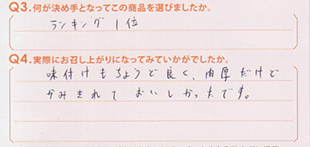 Q3.何が決め手となってこの商品を選びましたか。
ランキング1位
Q4.実際にお召し上がりになってみていかがでしたか。
味付けもちょうど良く、肉厚だけど
かみきれて おいしかったです。